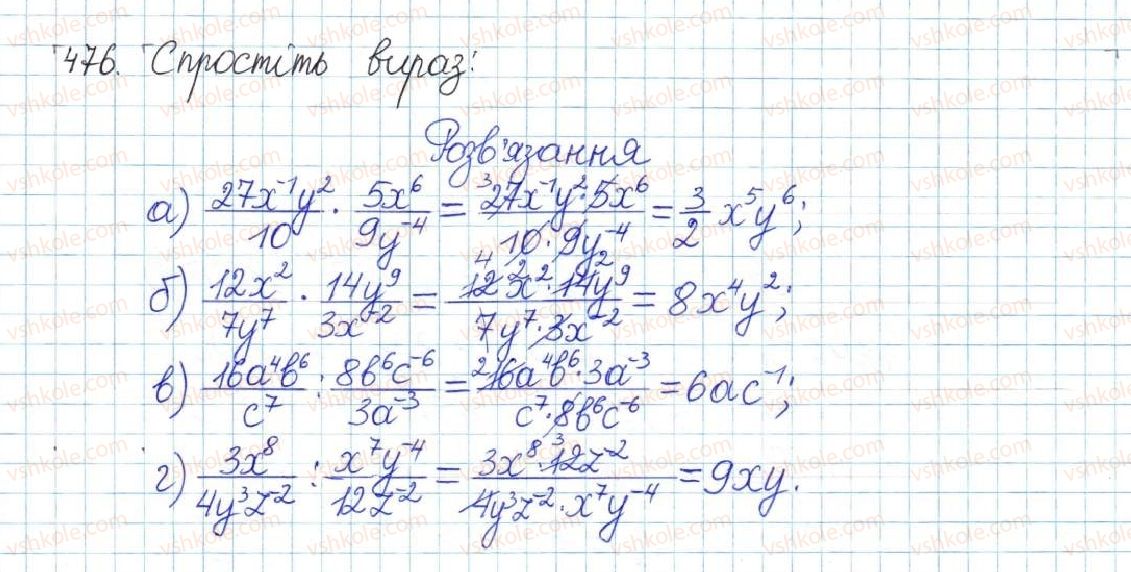 476. Спростіть вираз:
Розв'язання
а) \frac{27x^{-1}y^2}{10} · \frac{5x^6}{9y^{-4}} = \frac{27x^{-1}y^2·5x^6}{10·9y^{-4}} = \frac{3}{2} x^5y^6;
б) \frac{12x^2}{7y^7} · \frac{14y^9}{3x^{-2}} = \frac{12x^2·14y^9}{7y^7·3x^{-2}} = 8x^4y^2;
в) \frac{16a^4b^6}{c^7} : \frac{8b^6c^{-6}}{3a^{-3}} = \frac{16a^4b^6·3a^{-3}}{c^7·8b^6c^{-6}} = 6ac^{-1};
г) \frac{3x^8}{4y^3z^{-2}} : \frac{x^7y^{-4}}{12z^{-2}} = \frac{3x^8·12z^{-2}}{4y^3z^{-2}·x^7y^{-4}} = 9xy.
vshkole.com